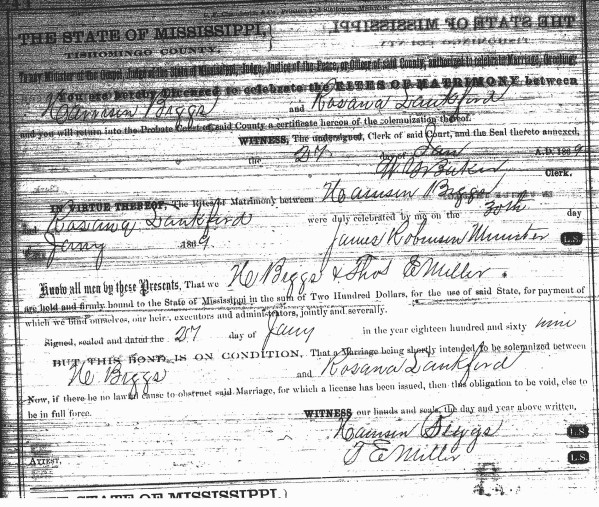 THE STATE OF MISSISSIPPI,}
TISHOMINGO COUNTY.
To any Minister of the Gospel, Judge of the State of Mississippi, Judge, Justice of the Peace, or Officer of said County, authorized to celebrate Marriage, Greeting:
You are hereby Licensed to celebrate the RITES OF MATRIMONY between
Harrison Biggs and Rosana Lankford
and you will return into the Probate Court of said County a certificate hereon of the solemnization thereof.
WITNESS, The undersigned, Clerk of said Court, and the Seal thereto annexed,
the 27 day of Jan A.D. 1869
Clerk.
IN VIRTUE THEREOF, The Rites of Matrimony between Harrison Biggs
and Rosana Lankford were duly celebrated by me on the 30th day
of Jany 1869 James Robinson Minister L.S.
Know all men by these Presents, That we H Biggs & Thos E Miller.
are held and firmly bound to the State of Mississippi in the sum of Two Hundred Dollars, for the use of said State, for payment of
which we bind ourselves, our heirs, executors and administrators, jointly and severally.
Signed, sealed and dated the 27 day of Jany in the year eighteen hundred and sixty nine
BUT THIS BOND, IS ON CONDITION, That a Marriage being shortly intended to be solemnized between
H Biggs and Rosana Lankford
Now, if there be no lawful cause to obstruct said Marriage, for which a license has been issued, then this obligation to be void, else to
be in full force.
WITNESS our hands and seals, the day and year above written,
Harrison Biggs L.S.
ATTEST, T E Miller L.S.
THE STATE OF MISSISSIPPI,}